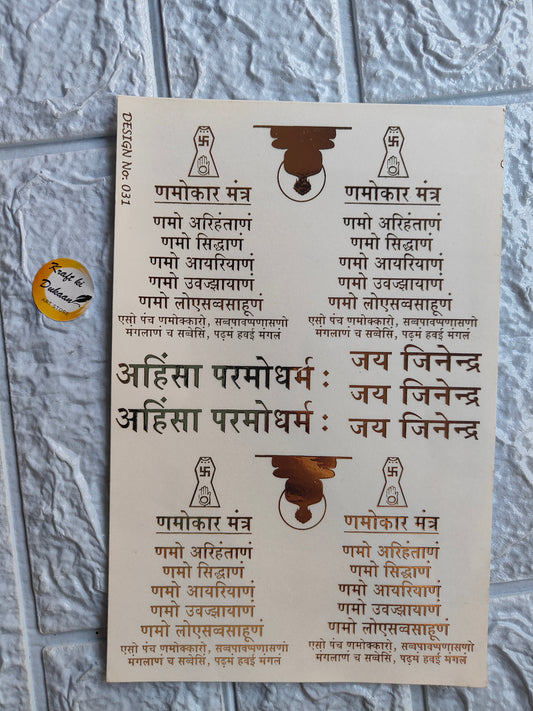 DESIGN No. 031
Kraft ki
Dukaan
ART STORE
णमोकार मंत्र
णमो अरिहंताणं
णमो सिद्धाणं
णमो आयरियाणं
णमो उवज्झायाणं
णमो लोएसव्वसाहूणं
एसो पंच णमोक्कारो, सव्वपावप्पणासणो
मंगलाणं च सव्वेसिं, पढ़मं हवई मंगलं
णमोकार मंत्र
णमो अरिहंताणं
णमो सिद्धाणं
णमो आयरियाणं
णमो उवज्झायाणं
णमो लोएसव्वसाहूणं
एसो पंच णमोक्कारो, सव्वपावप्पणासणो
मंगलाणं च सव्वेसिं, पढ़मं हवई मंगलं
अहिंसा परमोधर्म :
अहिंसा परमोधर्म :
जय जिनेन्द्र
जय जिनेन्द्र
जय जिनेन्द्र
णमोकार मंत्र
णमो अरिहंताणं
णमो सिद्धाणं
णमो आयरियाणं
णमो उवज्झायाणं
णमो लोएसव्वसाहूणं
एसो पंच णमोक्कारो, सव्वपावप्पणासणो
मंगलाणं च सव्वेसिं, पढ़मं हवई मंगलं
णमोकार मंत्र
णमो अरिहंताणं
णमो सिद्धाणं
णमो आयरियाणं
णमो उवज्झायाणं
णमो लोएसव्वसाहूणं
एसो पंच णमोक्कारो, सव्वपावप्पणासणो
मंगलाणं च सव्वेसिं, पढ़मं हवई मंगलं